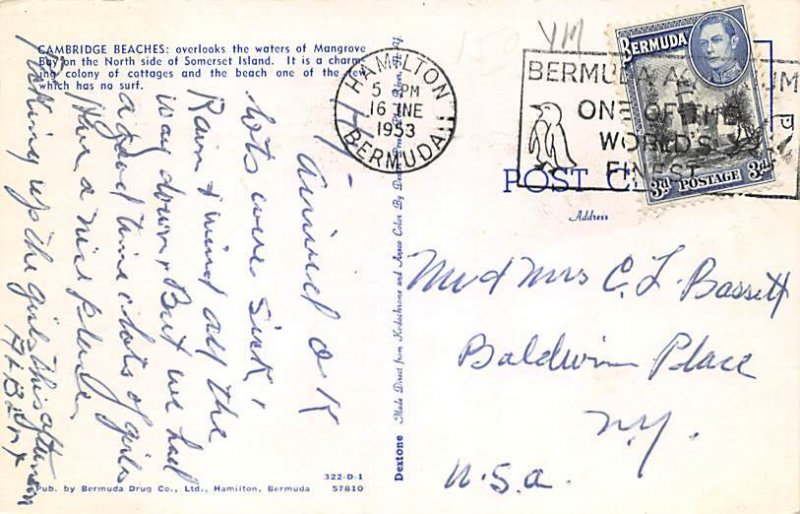 CAMBRIDGE BEACHES: overlooks the waters of Mangrove
Bay on the North side of Somerset Island. It is a charm-
ing colony of cottages and the beach one of the few
which has no surf.
Hi -
arrived O K
lots were sick,
Rain & wind all the
way down, But we had
a good time & lots of girls
Have a nice place,
Picking up the girls this afternoon
Pub. by Bermuda Drug Co., Ltd., Hamilton, Bermuda
322-D-1
57810
Dextone
Made Direct from Kodachrome and Ansco Color By
HAMILTON
5 PM
16 JNE
1953
BERMUDA
VM
BERMUDA
ONE OF THE
WORLD'S
FINEST
BERMUDA
3d POSTAGE 3d
POST C
Address
M and Mrs C. L. Bassett
Baldwin Place
N.Y.
U.S.a.